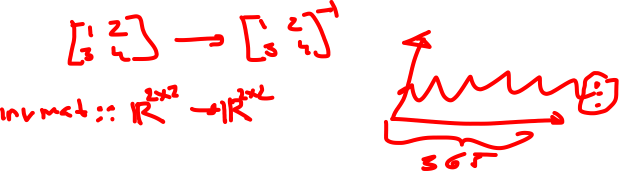 [1 2 3 4] → [1 2 3 4]⁻¹
invmat :: ℝ²ˣ² → ℝ²ˣ²
365